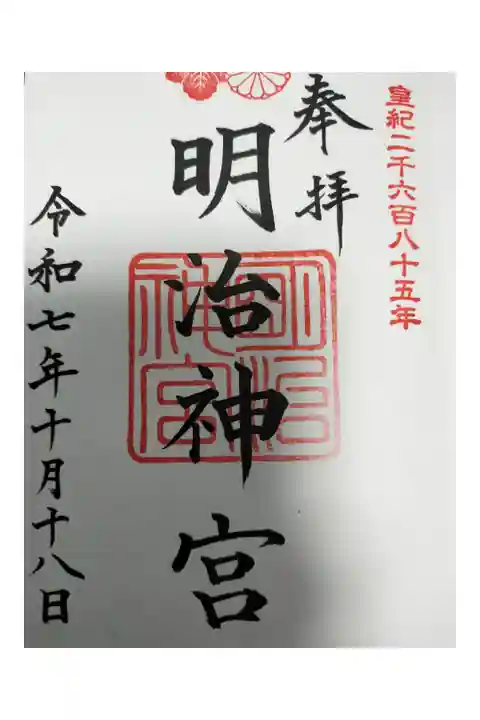 皇紀二千六百八十五年
奉拝
明治神宮
明治神宮
令和七年十月十八日